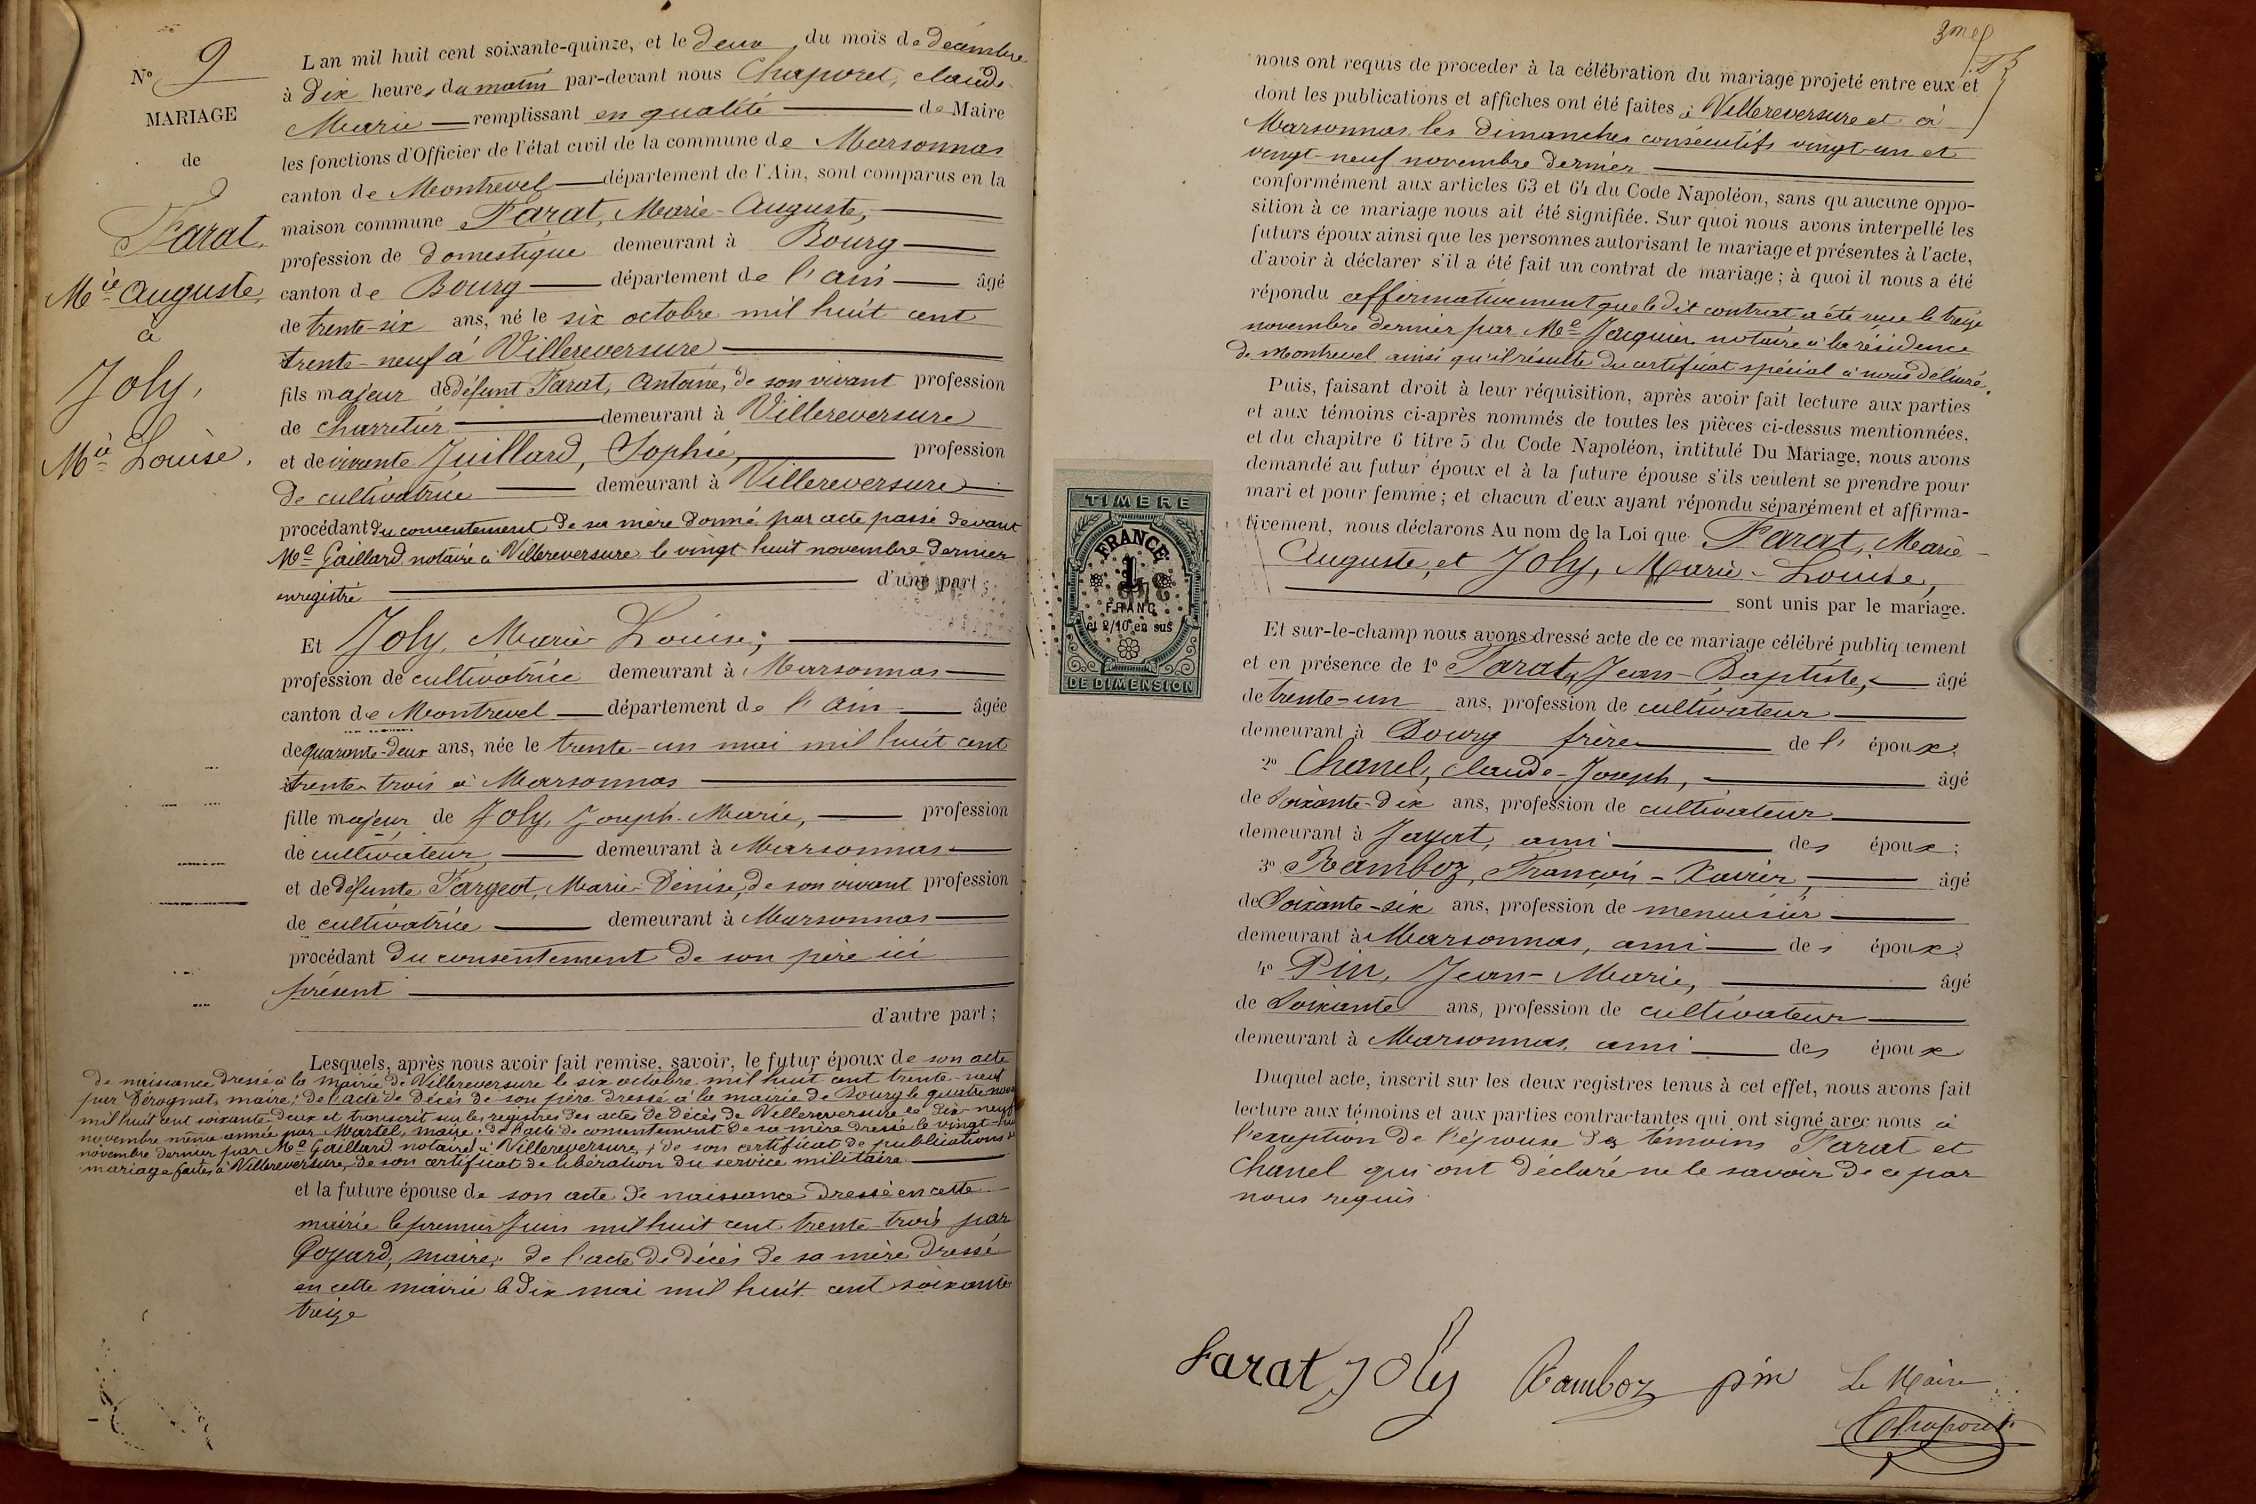 N° 9
MARIAGE
de
Farat,
Mie Auguste,
à
Joly,
Mie Louise.
L an mil huit cent soixante-quinze, et le deux du mois de décembre
à dix heures du matin par-devant nous Chaporet, claude
Marie remplissant en qualité de Maire
les fonctions d'Officier de l'état civil de la commune de Marsonnas
canton de Montrevel département de l'Ain, sont comparus en la
maison commune Farat, Marie-Auguste,
profession de domestique demeurant à Bourg
canton de Bourg département de l'ain âgé
de trente-six ans, né le six octobre mil huit cent
trente-neuf à Villereversure
fils majeur de défunt Farat, Antoine, de son vivant profession
de charretier demeurant à Villereversure
et de vivante Juillard, Sophie, profession
de cultivatrice demeurant à Villereversure
procédant du consentement de sa mère donné par acte passé devant
Me Gaillard notaire à Villereversure le vingt huit novembre dernier
enregistré d'une part ;
Et Joly, Marie Louise,
profession de cultivatrice demeurant à Marsonnas
canton de Montrevel département de l'ain âgée
de quarante-deux ans, née le trente-un mai mil huit cent
trente trois à Marsonnas
fille majeur de Joly, Joseph-Marie, profession
de cultivateur demeurant à Marsonnas
et de défunte Fargeot, Marie-Denise, de son vivant profession
de cultivatrice demeurant à Marsonnas
procédant du consentement de son père ici
présent
d'autre part ;
Lesquels, après nous avoir fait remise, savoir, le futur époux de son acte
de naissance dressé à la mairie de Villereversure le six octobre mil huit cent trente-neuf
par Dérognat, maire ; de l'acte de décès de son père dressé à la mairie de Bourg le quatre
mil huit cent soixante-deux et transcrit sur les registres des actes de décès de Villereversure le dix-neuf
novembre même année par Martel, maire ; de l'acte de consentement de sa mère dressé le vingt-huit
novembre dernier par Me Gaillard notaire à Villereversure, de son certificat de publications de
mariage faites à Villereversure, de son certificat de libération du service militaire
et la future épouse de son acte de naissance dressé en cette
mairie le premier Juin mil huit cent trente-trois par
Goyard, maire ; de l'acte de décès de sa mère dressé
en cette mairie le dix mai mil huit cent soixante
treize
nous ont requis de proceder à la célébration du mariage projeté entre eux et
dont les publications et affiches ont été faites à Villereversure et à
Marsonnas les dimanches consécutifs vingt-un et
vingt-neuf novembre dernier
conformément aux articles 63 et 64 du Code Napoléon, sans qu aucune oppo-
sition à ce mariage nous ait été signifiée. Sur quoi nous avons interpellé les
futurs époux ainsi que les personnes autorisant le mariage et présentes à l'acte,
d'avoir à déclarer s'il a été fait un contrat de mariage ; à quoi il nous a été
répondu affirmativement que le dit contrat a été reçu le treize
novembre dernier par Me Jacquier notaire à la résidence
de Montrevel ainsi qu'il résulte du certificat spécial à nous délivré.
Puis, faisant droit à leur réquisition, après avoir fait lecture aux parties
et aux témoins ci-après nommés de toutes les pièces ci-dessus mentionnées,
et du chapitre 6 titre 5 du Code Napoléon, intitulé Du Mariage, nous avons
demandé au futur époux et à la future épouse s'ils veulent se prendre pour
mari et pour femme ; et chacun d'eux ayant répondu séparément et affirma-
tivement, nous déclarons Au nom de la Loi que Farat, Marie-
Auguste, et Joly, Marie-Louise,
sont unis par le mariage.
Et sur-le-champ nous avons dressé acte de ce mariage célébré publiquement
et en présence de 1° Farat, Jean-Baptiste, âgé
de trente-un ans, profession de cultivateur
demeurant à Bourg frère de l'époux ;
2° Chanel, claude-Joseph, âgé
de soixante-dix ans, profession de cultivateur
demeurant à Jayat, ami des époux ;
3° Ramboz, François-Xavier, âgé
de soixante-six ans, profession de menuisier
demeurant à Marsonnas, ami des époux ;
4° Pin, Jean-Marie, âgé
de soixante ans, profession de cultivateur
demeurant à Marsonnas, ami des époux
Duquel acte, inscrit sur les deux registres tenus à cet effet, nous avons fait
lecture aux témoins et aux parties contractantes qui ont signé avec nous à
l'exception de l'épouse des témoins Farat et
Chanel qui ont déclaré ne le savoir de ce par
nous requis
TIMBRE
FRANCE
1
FRANC
et 2/10 en sus
DE DIMENSION
Farat Joly Ramboz pin Le Maire
Chaporet